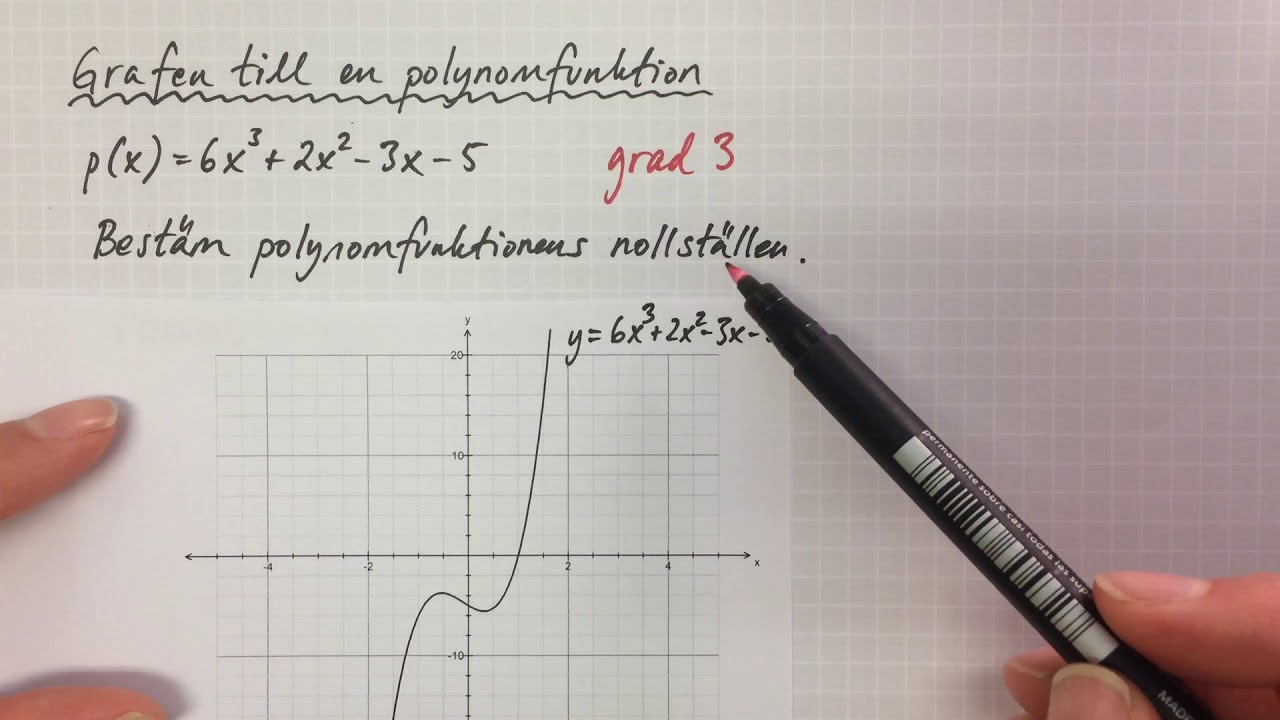 Grafen till en polynomfunktion
p(x) = 6x³ + 2x² - 3x - 5 grad 3
Bestäm polynomfunktionens nollställen.
y = 6x³ + 2x² - 3x -
y
20
10
-4 -2 2 4 x
-10
permanente sobre casi todas las sup
MAD